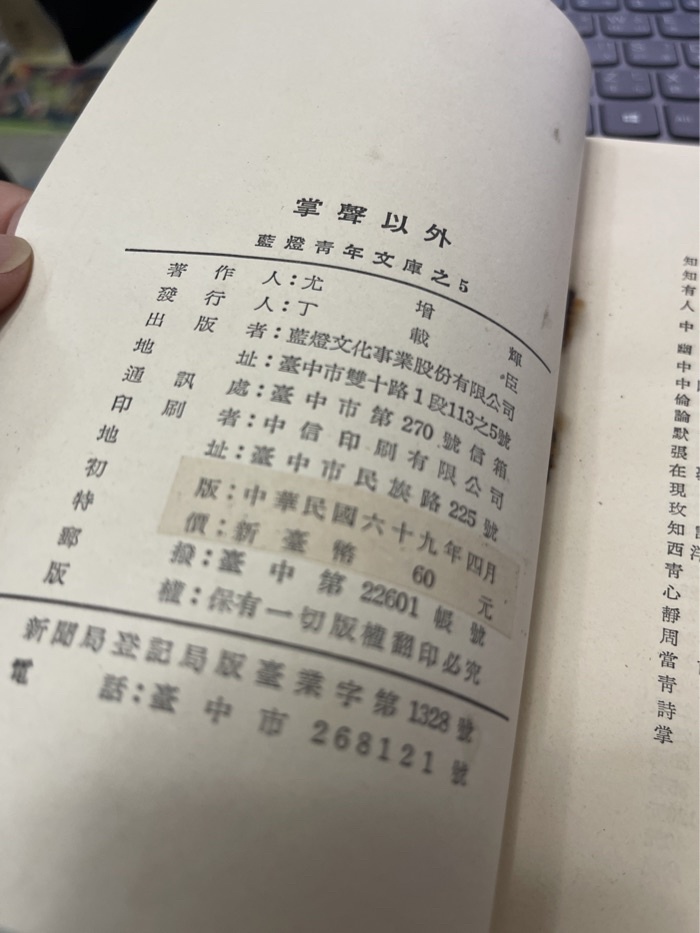 掌聲以外
藍燈青年文庫之5
著作人：尤增輝
發行人：丁載臣
出版者：藍燈文化事業股份有限公司
地址：臺中市雙十路1段113之5號
通訊處：臺中市第270號信箱
印刷者：中信印刷有限公司
地址：臺中市民族路225號
初版：中華民國六十九年四月
特價：新臺幣60元
郵撥：臺中第22601帳號
版權：保有一切版權翻印必究
新聞局登記局版臺業字第1328號
電話：臺中市268121號
知
知
有
人
中
幽
中
中
倫
論
默
張
在
現
玫
知
西
青
心
靜
周
當
青
詩
掌